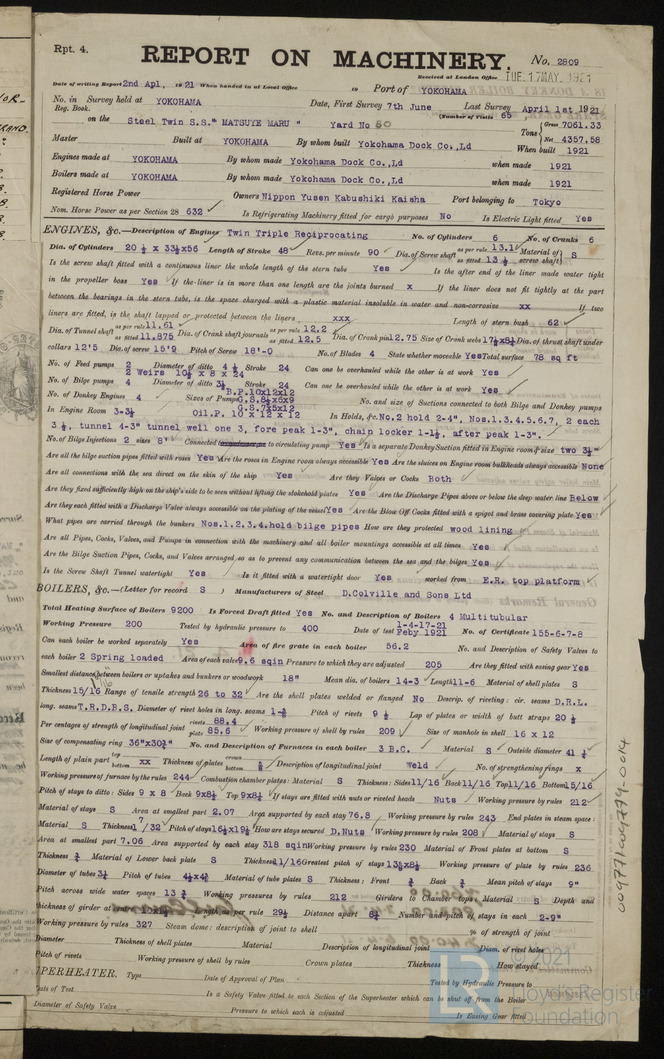 Rpt. 4.
REPORT ON MACHINERY.
No. 2809
Received at London Office TUE. 17 MAY. 1921
Date of writing Report 2nd Apl, 1921 When handed in at Local Office 19 Port of YOKOHAMA
No. in Survey held at YOKOHAMA Date, First Survey 7th June Last Survey April 1st 1921
Reg. Book. (Number of Visits 65
on the Steel Twin S.S." MATSUYE MARU " Yard No 80 Tons Gross 7061.33 Net 4357.58
Master Built at YOKOHAMA By whom built Yokohama Dock Co.,Ld When built 1921
Engines made at YOKOHAMA By whom made Yokohama Dock Co.,Ld when made 1921
Boilers made at YOKOHAMA By whom made Yokohama Dock Co.,Ld when made 1921
Registered Horse Power Owners Nippon Yusen Kabushiki Kaisha Port belonging to Tokyo
Nom. Horse Power as per Section 28 632 Is Refrigerating Machinery fitted for cargo purposes No Is Electric Light fitted Yes
ENGINES, &c.—Description of Engines Twin Triple Reciprocating No. of Cylinders 6 No. of Cranks 6
Dia. of Cylinders 20 ½ x 33½x56 Length of Stroke 48 Revs. per minute 90 Dia. of Screw shaft as per rule 13.1 as fitted 13 ½ Material of screw shaft S
Is the screw shaft fitted with a continuous liner the whole length of the stern tube Yes Is the after end of the liner made water tight
in the propeller boss Yes If the liner is in more than one length are the joints burned x If the liner does not fit tightly at the part
between the bearings in the stern tube, is the space charged with a plastic material insoluble in water and non-corrosive xx If two
liners are fitted, is the shaft lapped or protected between the liners xxx Length of stern bush 62
Dia. of Tunnel shaft as per rule 11.61 as fitted 11.875 Dia. of Crank shaft journals as per rule 12.2 as fitted 12.5 Dia. of Crank pin 12.75 Size of Crank webs Dia. of thrust shaft under
collars 12'5 Dia. of screw 15'9 Pitch of Screw 18'-0 No. of Blades 4 State whether moveable Yes Total surface 78 sq ft
No. of Feed pumps 2 Diameter of ditto 4 ½ Stroke 24 Can one be overhauled while the other is at work Yes
2 Weirs 10½ x 8 x 24
No. of Bilge pumps 4 Diameter of ditto 3½ Stroke 24 Can one be overhauled while the other is at work Yes
No. of Donkey Engines 4 Sizes of Pumps B.P.10x12x12 G.S.8½x6x9 G.S.7x5x12 No. and size of Suctions connected to both Bilge and Donkey pumps
In Engine Room 3-3½ Oil.P. 10 x 12 x 12 In Holds, &c. No.2 hold 2-4", Nos.1.3.4.5.6.7, 2 each
3 ½, tunnel 4-3" tunnel well one 3, fore peak 1-3", chain locker 1-1½, after peak 1-3".
No. of Bilge Injections 2 sizes 8" Connected to circulating pump Yes Is a separate Donkey Suction fitted in Engine room & size two 3½"
Are all the bilge suction pipes fitted with roses Yes Are the roses in Engine room always accessible Yes Are the sluices on Engine room bulkheads always accessible None
Are all connections with the sea direct on the skin of the ship Yes Are they Valves or Cocks Both
Are they fixed sufficiently high on the ship's side to be seen without lifting the stokehold plates Yes Are the Discharge Pipes above or below the deep water line Below
Are they each fitted with a Discharge Valve always accessible on the plating of the vessel Yes Are the Blow Off Cocks fitted with a spigot and brass covering plate Yes
What pipes are carried through the bunkers Nos.1.2.3.4.hold bilge pipes How are they protected wood lining
Are all Pipes, Cocks, Valves, and Pumps in connection with the machinery and all boiler mountings accessible at all times Yes
Are the Bilge Suction Pipes, Cocks, and Valves arranged so as to prevent any communication between the sea and the bilges Yes
Is the Screw Shaft Tunnel watertight Yes Is it fitted with a watertight door Yes worked from E.R. top platform
BOILERS, &c.—(Letter for record S ) Manufacturers of Steel D.Colville and Sons Ltd
Total Heating Surface of Boilers 9200 Is Forced Draft fitted Yes No. and Description of Boilers 4 Multitubular
Working Pressure 200 Tested by hydraulic pressure to 400 Date of test 1-4-17-21 Feby 1921 No. of Certificate 155-6-7-8
Can each boiler be worked separately Yes Area of fire grate in each boiler 56.2 No. and Description of Safety Valves to
each boiler 2 Spring loaded Area of each valve 9.6 sqin Pressure to which they are adjusted 205 Are they fitted with easing gear Yes
Smallest distance between boilers or uptakes and bunkers or woodwork 18" Mean dia. of boilers 14-3 Length 11-6 Material of shell plates S
Thickness 15/16 Range of tensile strength 26 to 32 Are the shell plates welded or flanged No Descrip. of riveting: cir. seams D.R.L.
long. seams T.R.D.B.S. Diameter of rivet holes in long. seams Pitch of rivets 9 ½ Lap of plates or width of butt straps 20 ½
Per centages of strength of longitudinal joint rivets 88.4 plate 85.6 Working pressure of shell by rules 209 Size of manhole in shell 16 x 12
Size of compensating ring 36"x30¾" No. and Description of Furnaces in each boiler 3 B.C. Material S Outside diameter
Length of plain part top bottom xx Thickness of plates crown bottom Description of longitudinal joint Weld No. of strengthening rings x
Working pressure of furnace by the rules 244 Combustion chamber plates: Material S Thickness: Sides 11/16 Back 11/16 Top 11/16 Bottom 15/16
Pitch of stays to ditto: Sides 9 x 8 Back 9x8½ Top 9x8½ If stays are fitted with nuts or riveted heads Nuts Working pressure by rules 212
Material of stays S Area at smallest part 2.07 Area supported by each stay 76.8 Working pressure by rules 243 End plates in steam space:
Material S Thickness Pitch of stays How are stays secured D.Nuts Working pressure by rules 208 Material of stays S
Area at smallest part 7.06 Area supported by each stay 318 sqin Working pressure by rules 230 Material of Front plates at bottom S
Thickness Material of Lower back plate S Thickness 11/16 Greatest pitch of stays Working pressure of plate by rules 236
Diameter of tubes Pitch of tubes Material of tube plates S Thickness: Front Back Mean pitch of stays 9"
Pitch across wide water spaces Working pressures by rules 212 Girders to Chamber tops: Material S Depth and
thickness of girder at centre Length as per rule Distance apart Number and pitch of stays in each 2-9"
Working pressure by rules 327 Steam dome: description of joint to shell % of strength of joint
Diameter Thickness of shell plates Material Description of longitudinal joint Diam. of rivet holes
Pitch of rivets Working pressure of shell by rules Crown plates Thickness How stayed
PERHEATER. Type Date of Approval of Plan Tested by Hydraulic Pressure to
Is a Safety Valve fitted to each Section of the Superheater which can be shut off from the Boiler
Diameter of Safety Valve Pressure to which each is adjusted Is Easing Gear fitted
© 2021
Lloyd's Register
Foundation